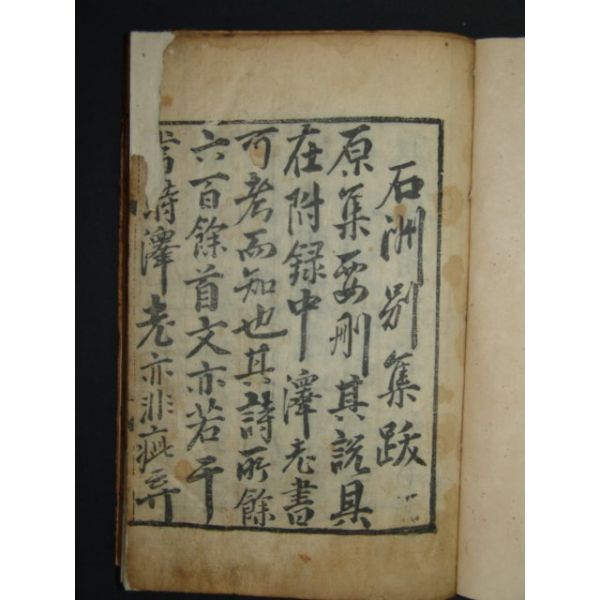 石洲別集跋
原集要刪其說具
在附録中澤老書
可考而知也其詩所餘
六百餘首文亦若干
詩澤老亦非疵弃